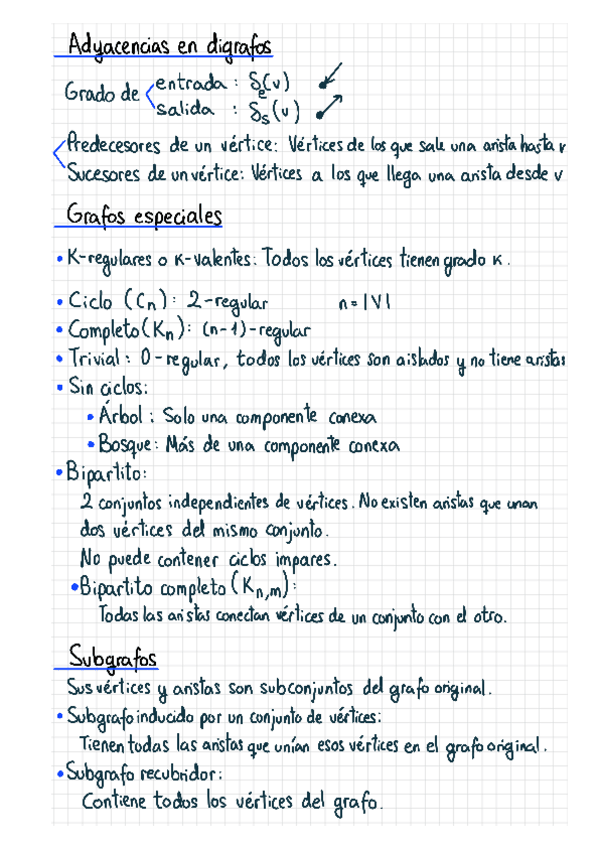 Adyacencias en digrafos
Grado de
entrada : δe(v)
salida : δs(v)
Predecesores de un vértice: Vértices de los que sale una arista hasta v
Sucesores de un vértice: Vértices a los que llega una arista desde v
Grafos especiales
• K-regulares o K-valentes: Todos los vértices tienen grado K.
• Ciclo (Cn): 2-regular n=|V|
• Completo (Kn): (n-1)-regular
• Trivial: 0-regular, todos los vértices son aislados y no tiene aristas
• Sin ciclos:
• Árbol: Solo una componente conexa
• Bosque: Más de una componente conexa
• Bipartito:
2 conjuntos independientes de vértices. No existen aristas que unan
dos vértices del mismo conjunto.
No puede contener ciclos impares.
• Bipartito completo (Kn,m):
Todas las aristas conectan vértices de un conjunto con el otro.
Subgrafos
Sus vértices y aristas son subconjuntos del grafo original.
• Subgrafo inducido por un conjunto de vértices:
Tienen todas las aristas que unían esos vértices en el grafo original.
• Subgrafo recubridor:
Contiene todos los vértices del grafo.